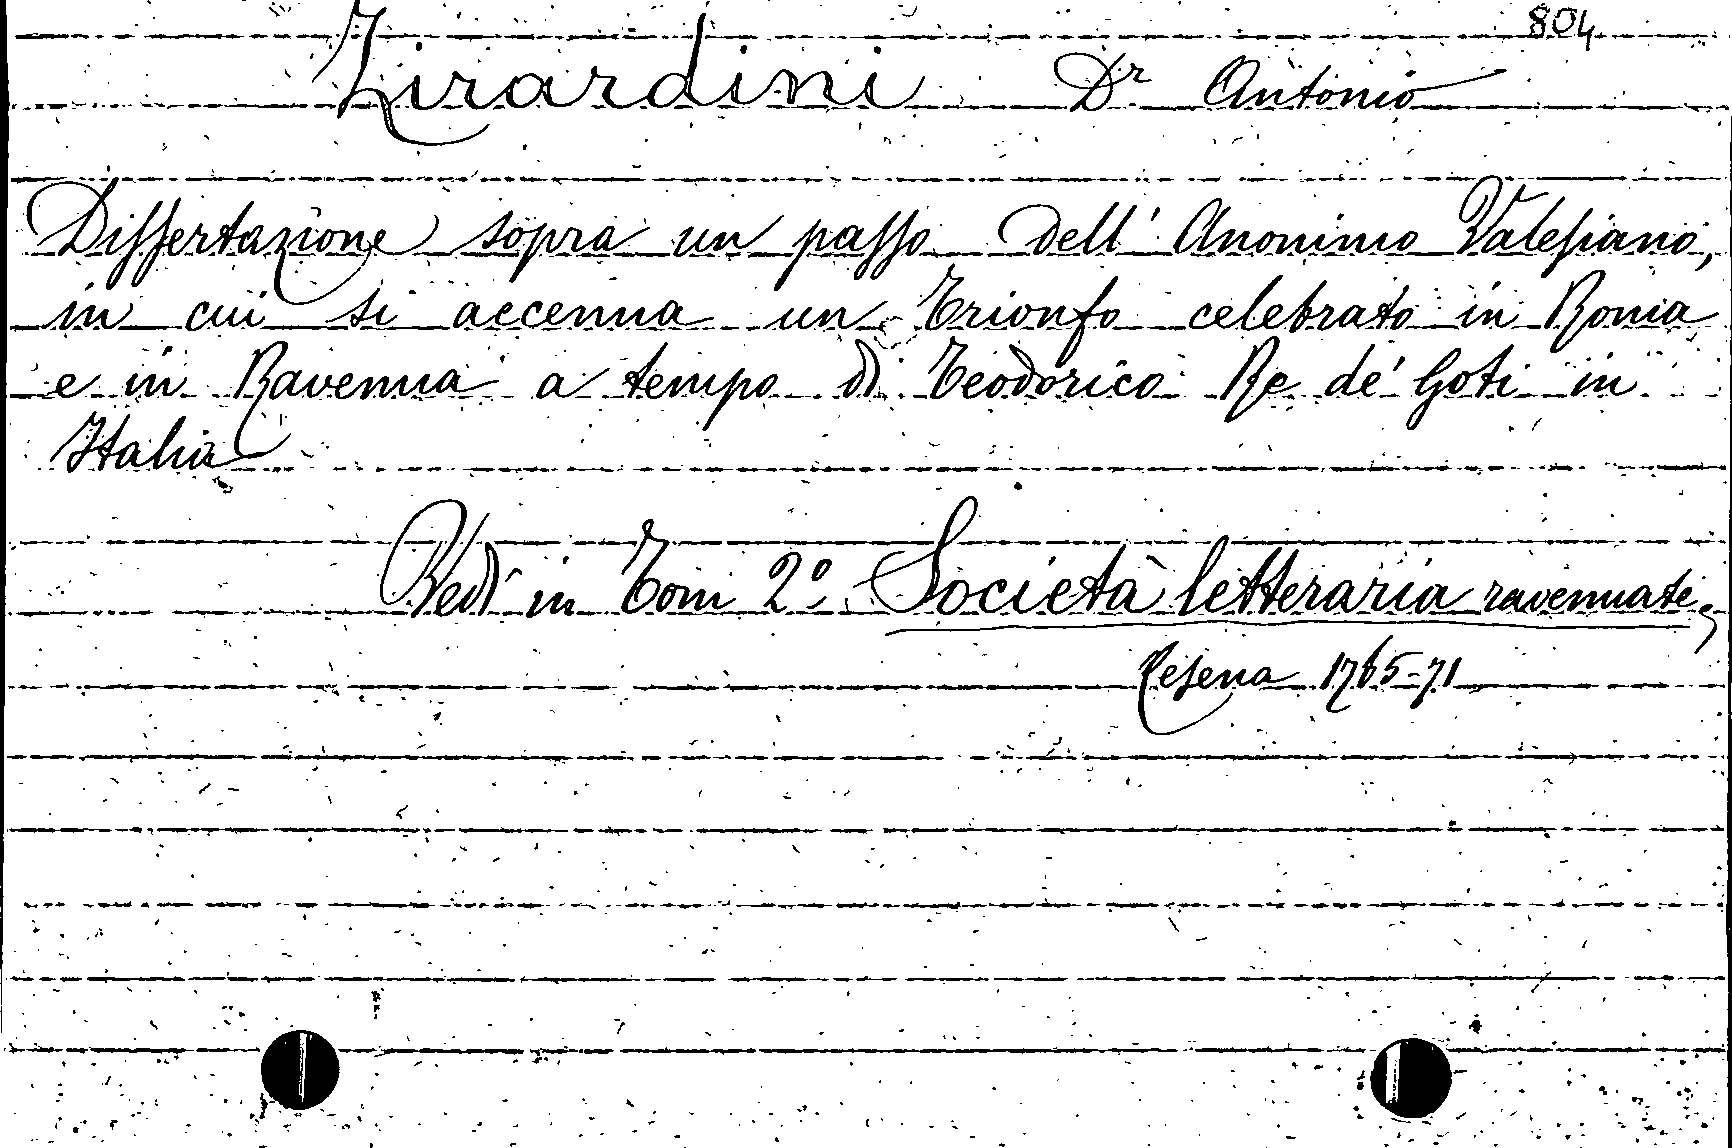 804
Zirardini Dr Antonio
Dissertazione sopra un passo dell' Anonimo Valesiano,
in cui si accenna un Trionfo celebrato in Roma
e in Ravenna a tempo di Teodorico Re de' Goti in
Italia
Vedi in Tom 2º Società letteraria ravennate,
Cesena 1765-71